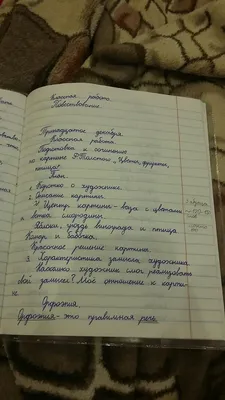 Классная работа.
Повествование.
Тринадцатое декабря.
Классная работа.
Подготовка к сочинению
по картине Ф. Толстого "Цветы, фрукты,
птица".
План.
1. Коротко о художнике.
2. Описание картины.
Центр картины - ваза с цветами
и ветка смородины.
Персики, гроздь винограда и птица
Комар и бабочка.
Красочное решение картины.
3. Характеристика замысла художника.
Насколько художник смог реализовать
свой замысел? Моё отношение к карти-
не.
Орфоэпия.
Орфоэпия - это правильная речь.